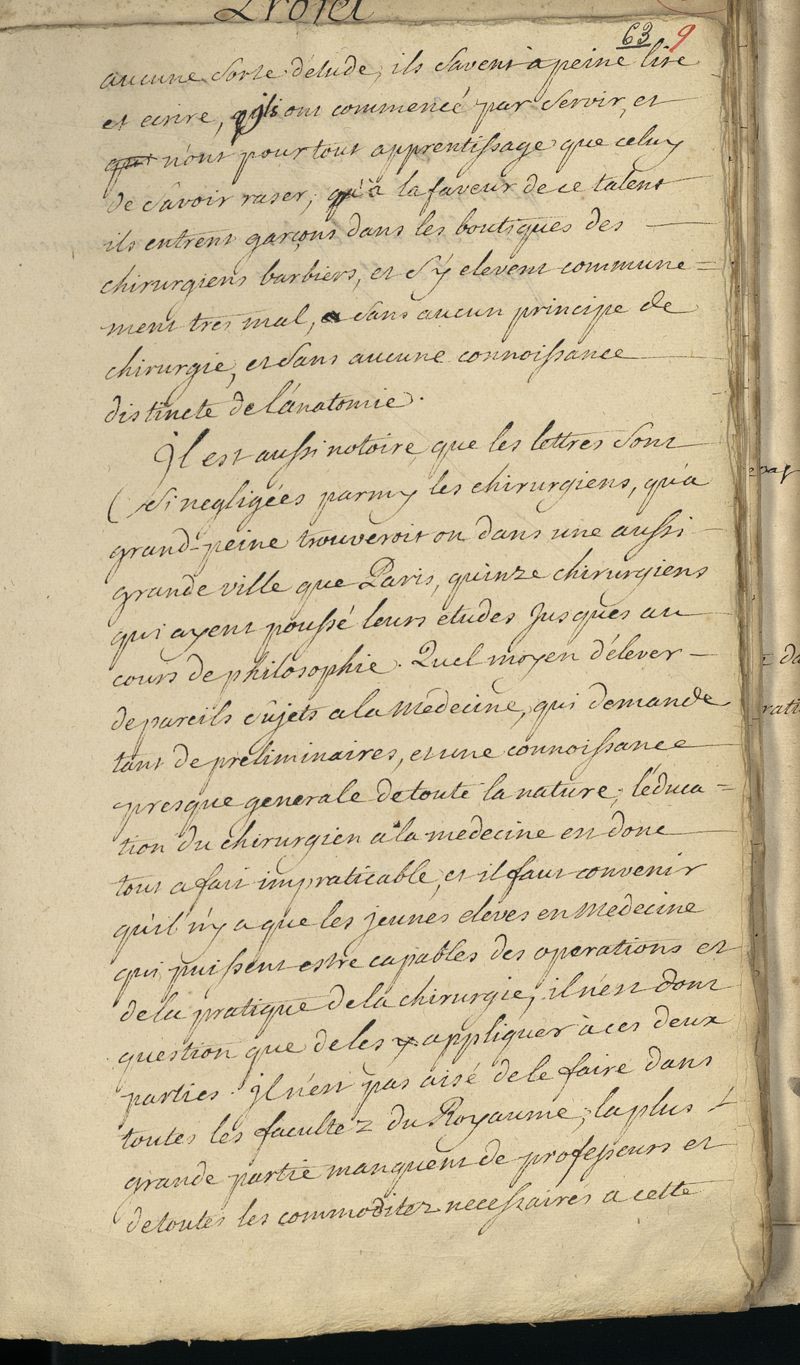 Projet
63 9
aucune sorte d'etude, ils savent a peine lire
et ecrire, qu'ils ont commencé par servir, et
n'ont pour tout apprentissage que celuy
de savoir raser, qu'à la faveur de ce talent
ils entrent garçons dans les boutiques des
chirurgiens barbiers, et s'y elevent commune=
ment tres mal, sans aucun principe de
chirurgie, et sans aucune connoissance
distincte de l'anatomie.
Il est aussi notoire que les lettres sont
si negligées parmy les chirurgiens, qu'a
grand-peine trouveroit on dans une aussi
grande ville que Paris, quinze chirurgiens
qui ayent poussé leurs etudes jusques au
cours de philosophie. Quel moyen d'élever
de pareils sujets a la médecine, qui demande
tant de préliminaires, et une connoissance
presque generale de toute la nature; l'éduca=
tion du chirurgien a la medecine est donc
tout a fait impraticable, et il faut convenir
qu'il n'y a que les jeunes eleves en Medecine
qui puissent estre capables des operations et
de la pratique de la chirurgie, il n'est donc
question que de les appliquer à ces deux
parties. Il n'est pas aisé de le faire dans
toutes les facultez du Royaume, la plus
grande partie manquent de professeurs et
de toutes les commoditez necessaires a cette